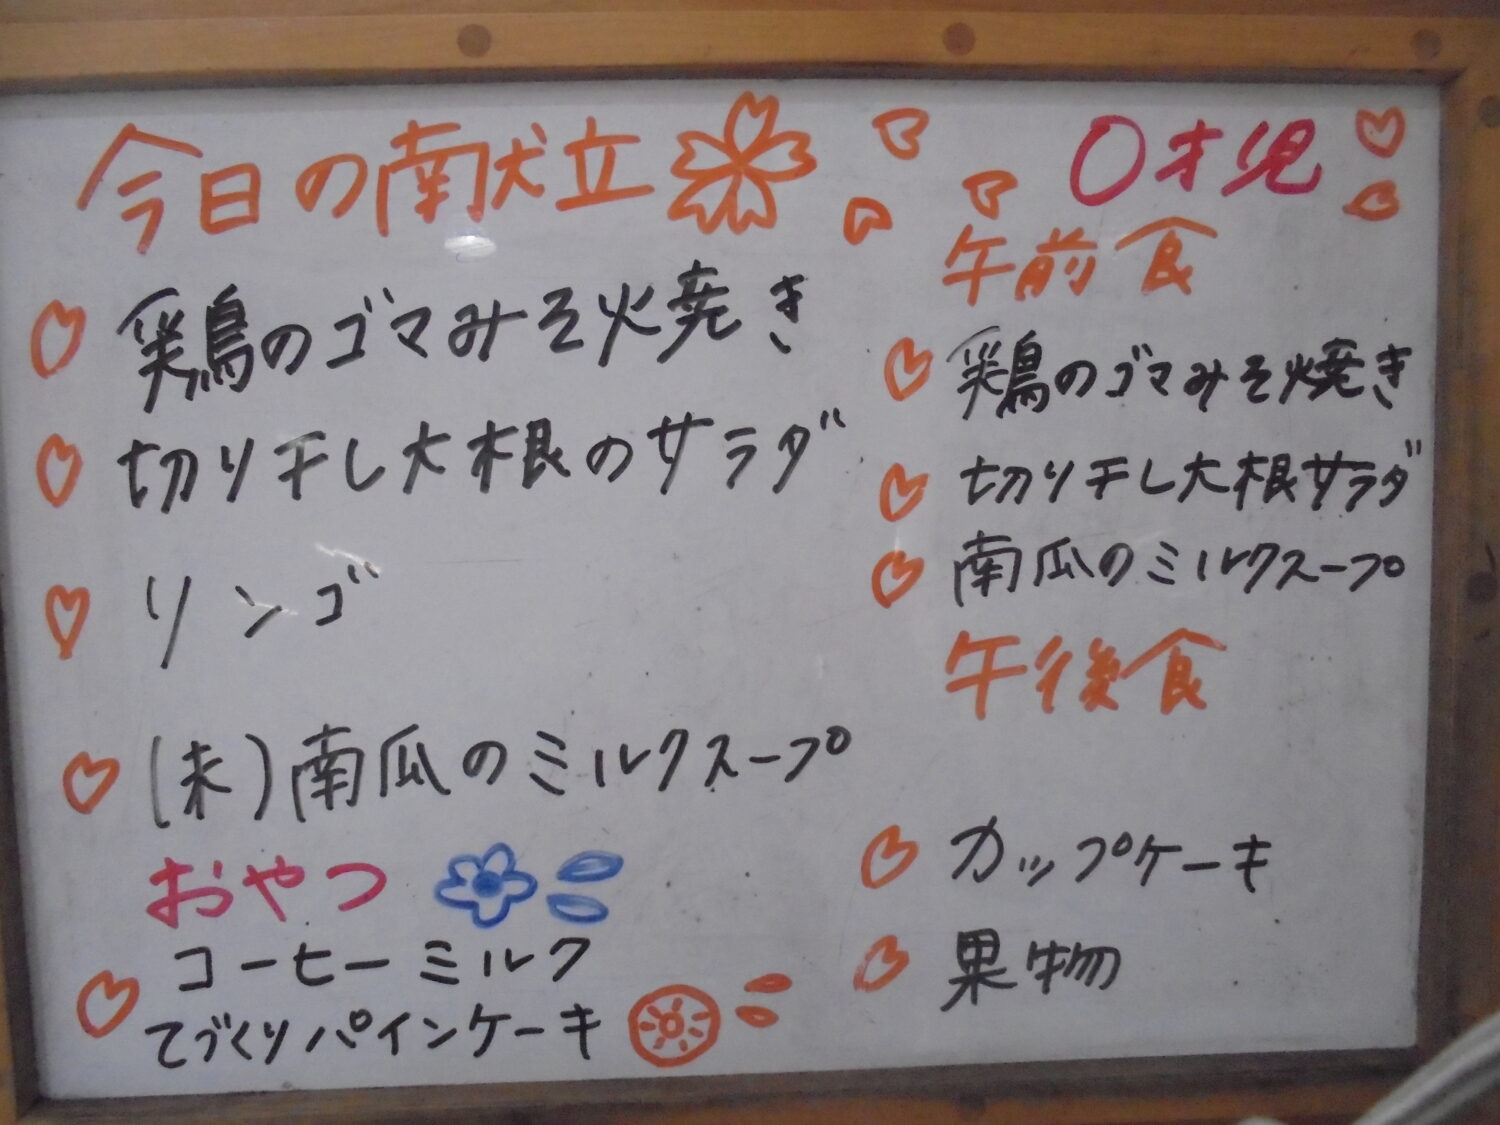 今日の献立
鶏のゴマみそ焼き
切り干し大根のサラダ
リンゴ
(未)南瓜のミルクスープ
おやつ
コーヒーミルク
てづくりパインケーキ
0才児
午前食
鶏のゴマみそ焼き
切り干し大根サラダ
南瓜のミルクスープ
午後食
カップケーキ
果物